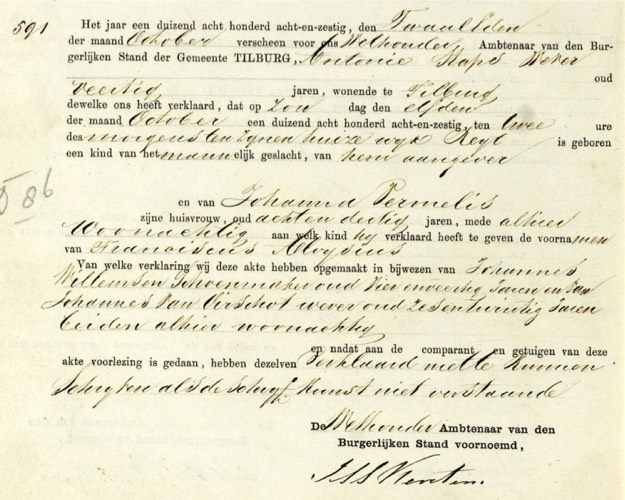 591
Het jaar een duizend acht honderd acht-en-zestig, den Twaalfden
der maand October verscheen voor ons Wethouder Ambtenaar van den Bur-
gerlijken Stand der Gemeente TILBURG, Antonie Staps Wever
oud
veertig jaren, wonende te Tilburg
dewelke ons heeft verklaard, dat op Zon dag den elfden
der maand October een duizend acht honderd acht-en-zestig, ten twee ure
des morgens ten zijnen huize wyk is geboren
een kind van het mannelijk geslacht, van hem aangever
D 86
en van Johanna Permelis
zijne huisvrouw, oud acht en dertig jaren, mede alhier
woonachtig aan welk kind hy verklaard heeft te geven de voornamen
van Franciscus Aloysius
Van welke verklaring wij deze akte hebben opgemaakt in bijwezen van Johannes
Willemsen Schoenmaker oud vier en veertig Jaren en van
Johannes van Oirschot wever oud zesentwintig Jaren
beiden alhier woonachtig
en nadat aan de comparant en getuigen van deze
akte voorlezing is gedaan, hebben dezelven verklaard niet te kunnen
Schryven als de Schryf kunst niet verstaande
De Wethouder Ambtenaar van den
Burgerlijken Stand voornoemd,